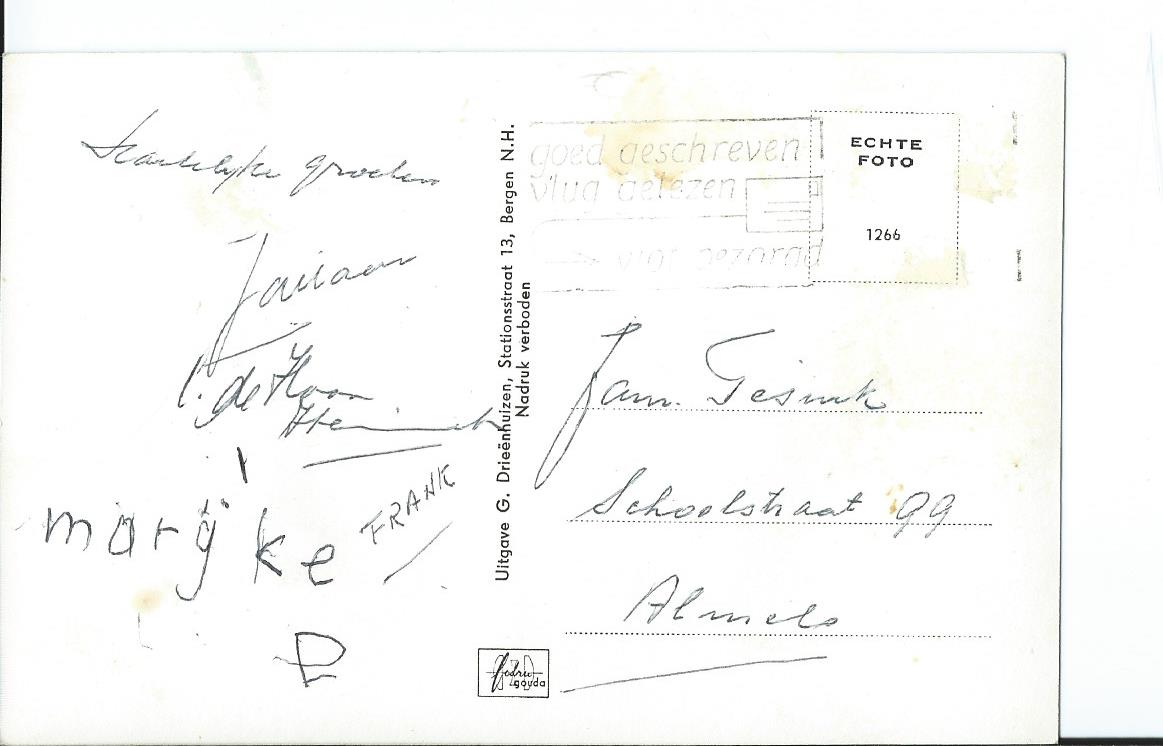 Hartelijke groeten
l. de Haan
marijke
FRANK
P
Uitgave G. Drieënhuizen, Stationsstraat 13, Bergen N.H.
Nadruk verboden
goed geschreven
vlug gelezen
vlot bezorgd
ECHTE
FOTO
1266
Fam. Tesink
Schoolstraat 99
Almelo
gouda